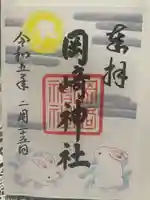 奉拝
岡﨑神社
令和五年二月十五日